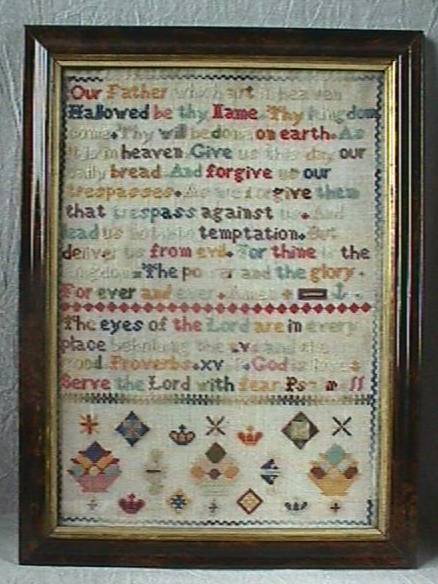 Our Father which art in heaven
Hallowed be thy Name. Thy kingdom
come. Thy will be done on earth. As
it is in heaven. Give us this day our
daily bread. And forgive us our
trespasses. As we forgive them
that trespass against us. And
lead us not into temptation. But
deliver us from evil. For thine is the
kingdom. The power and the glory.
For ever and ever. Amen
The eyes of the Lord are in every
place beholding the evil and the
good Proverbs. xv God is
Serve the Lord with fear Psalm